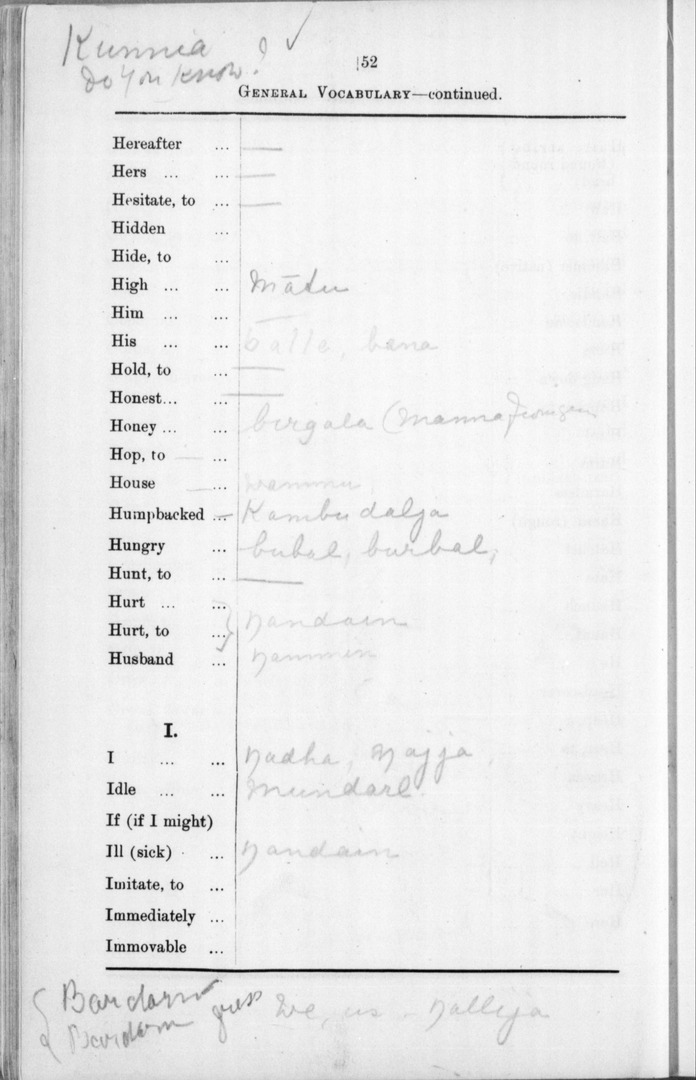 Kunnia
do you know?
152
GENERAL VOCABULARY—continued.
Hereafter ... —
Hers ... ... —
Hesitate, to ... —
Hidden ...
Hide, to ...
High ... ... mātu
Him ... ... —
His ... ... balle, bana
Hold, to ... —
Honest... ... —
Honey ... ... birgala (manna
Hop, to — ...
House — ... wammu
Humpbacked ... Kambudalja
Hungry ... bubal, burbal,
Hunt, to ... —
Hurt ... ...
Hurt, to ... } ŋandain
Husband ... ŋammin
I.
I ... ... ŋadha, ŋajja
Idle ... ... mundarl
If (if I might)
Ill (sick) ... ŋandain
Imitate, to ...
Immediately ...
Immovable ...
{ Bardarn
Bardarn grass
We, us - ŋallija